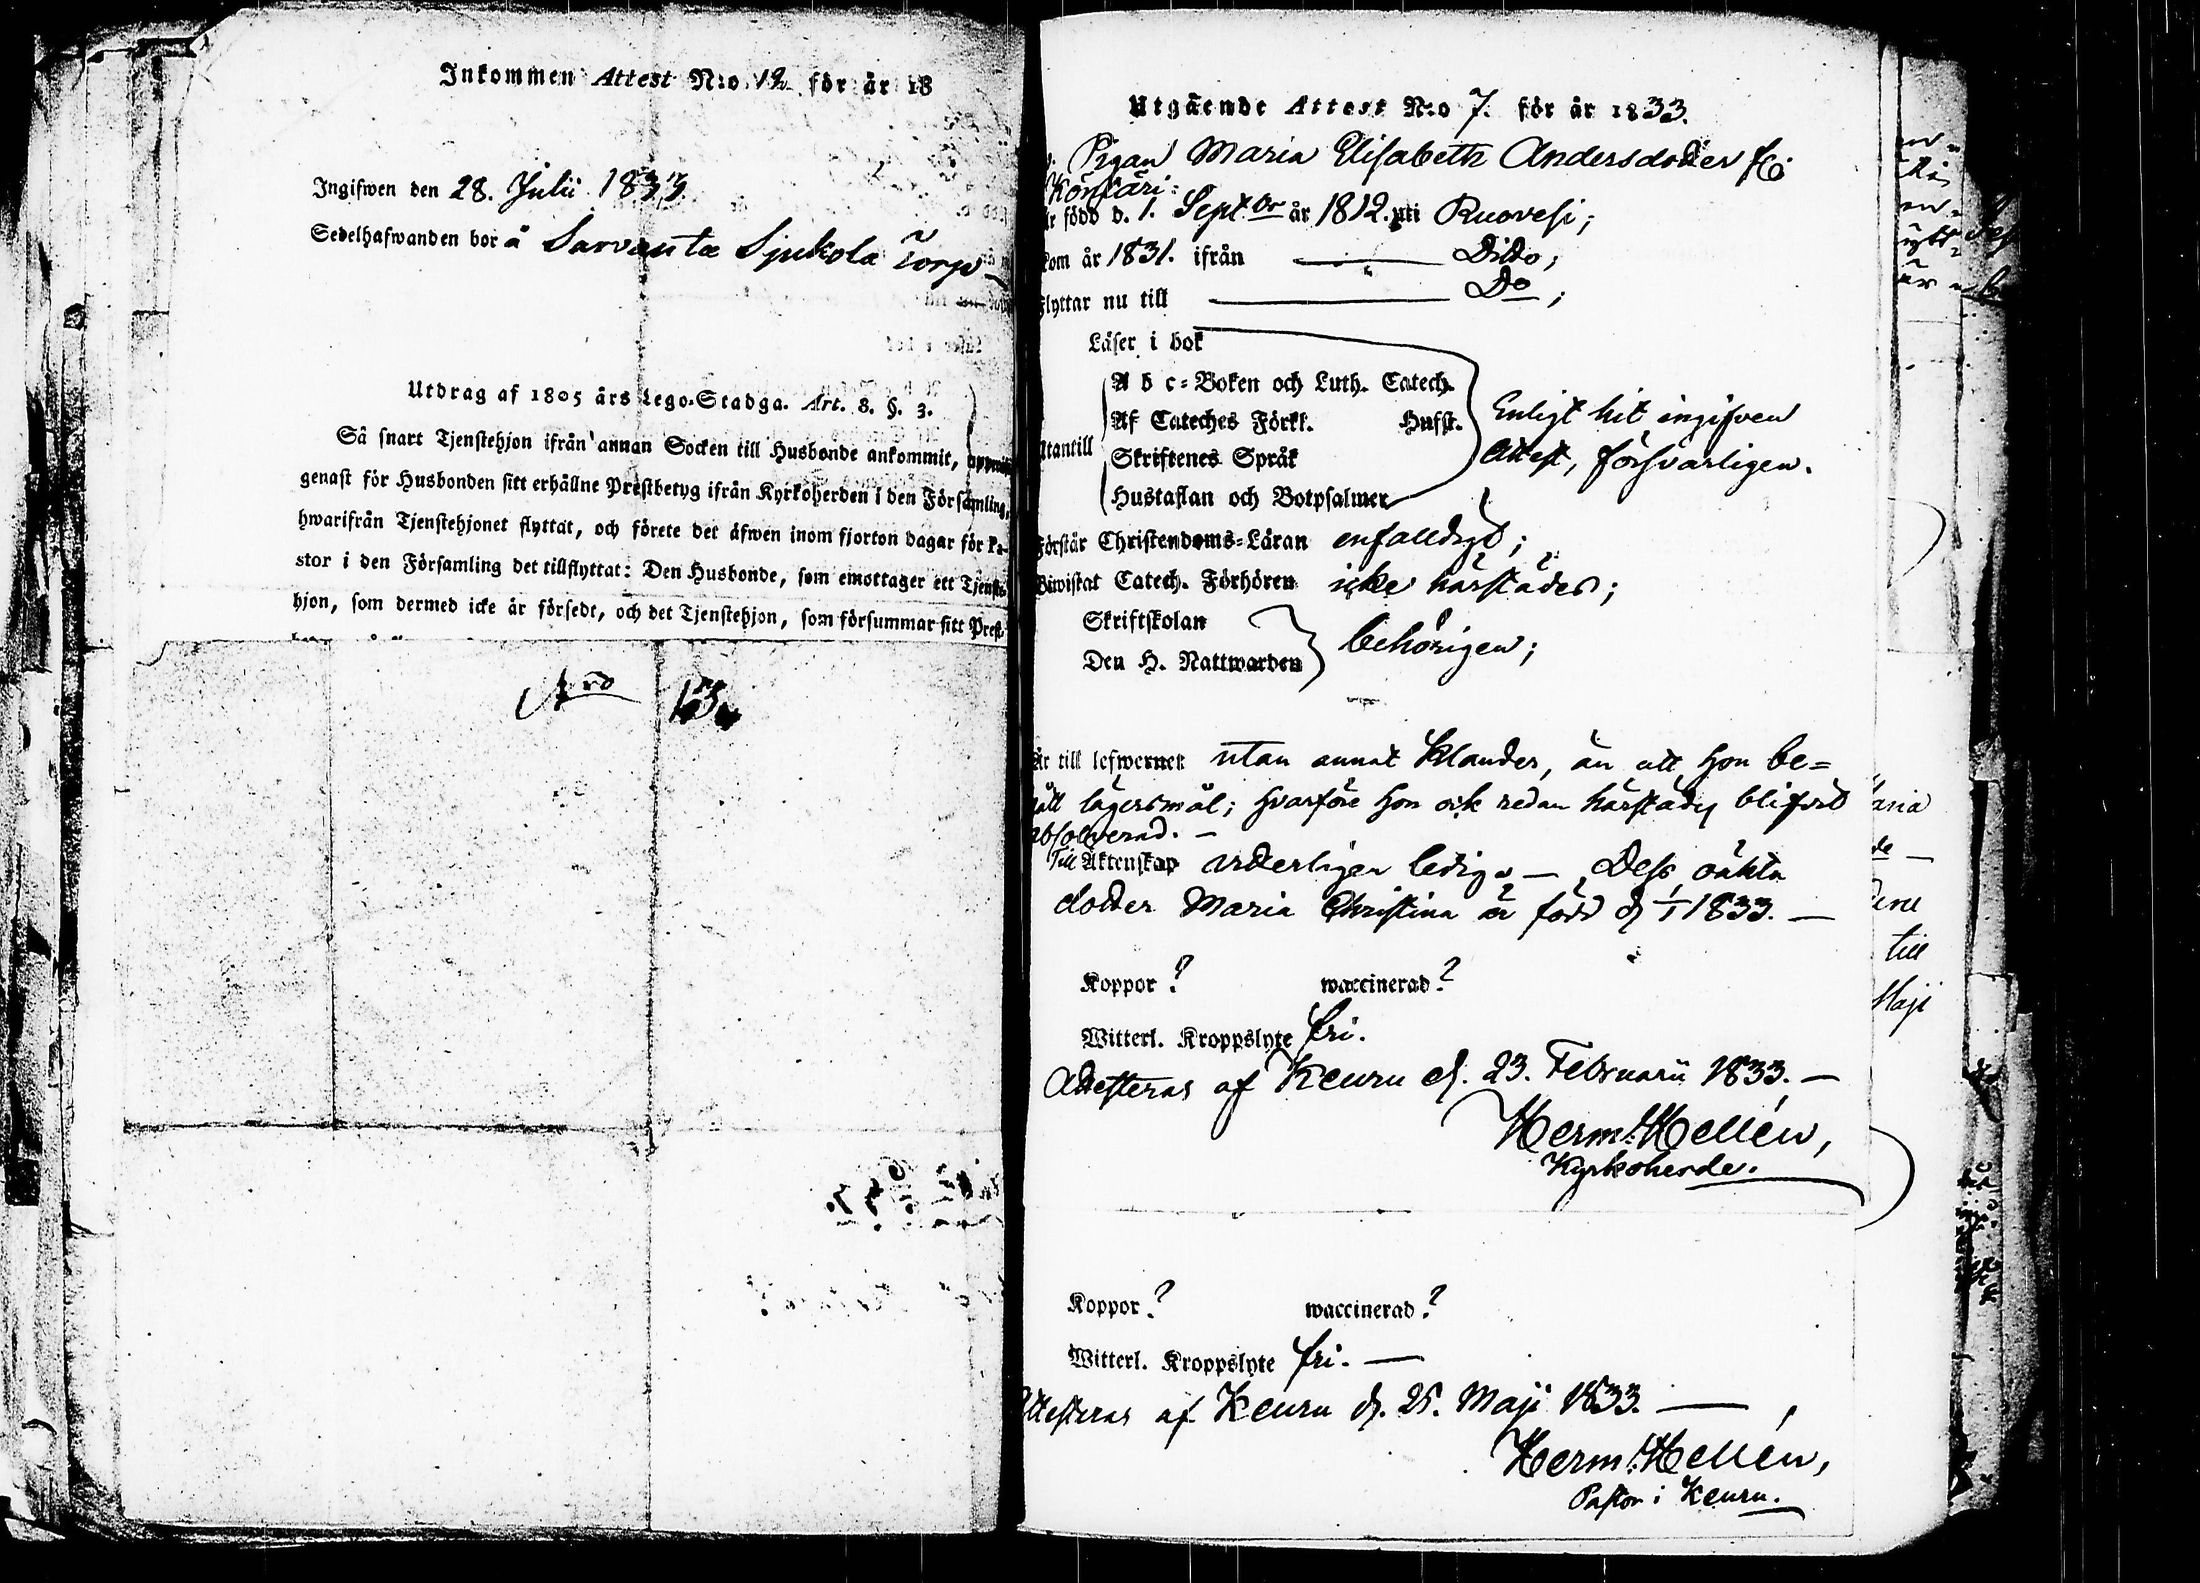 Inkommen Attest N:o 12 för år 18
Ingifwen den 28. Julii 1833
Sedelhafwanden bor å Sarvanta Sjukola Torp
Utdrag af 1805 års Lego-Stadga. Art. 8. §. 3.
Så snart Tjenstehjon ifrån annan Socken till Husbonde ankommit,
genast för Husbonden sitt erhållne Prestbetyg ifrån Kyrkoherden i den Församling,
hwarifrån Tjenstehjonet flyttat, och förete det äfwen inom fjorton dagar för Pa-
stor i den Församling det tillflyttat: Den Husbonde, som emottager ett Tjenste-
hjon, som dermed icke är försedt, och det Tjenstehjon, som försummar sitt Prest-
N:ro 13.
Utgående Attest N:o 7. för år 1833.
Pigan Maria Elisabeth Andersdotter fr.
är född d. 1. Sept:br år 1812. uti Ruovesi;
kom år 1831. ifrån — Ditto;
flyttar nu till — Do;
Läser i bok
A b c-Boken och Luth. Catech.
Af Cateches Förkl. Husft.
Enligt hit ingifven
Utantill
Skriftenes Språk
Attest, försvarligen.
Hustaflan och Botpsalmer
Förstår Christendoms-Läran enfalldigt;
Biwistat Catech. Förhören icke härstädes;
Skriftskolan
behörigen;
Den H. Nattwarden
Är till lefwernet utan annat klander, än att hon be-
gått lägersmål; hvarföre hon ock redan härstädes blifvit
absolverad. —
Till Äktenskap vederligen ledig. — Dess oäkta
dotter Maria Christina är född d 1/1 1833. —
Koppor? waccinerad?
Witterl. Kroppslyte fri.
Attesteras af Keuru d. 23. Februarii 1833. —
Herm: Hellén,
Kyrkoherde.
Koppor? waccinerad?
Witterl. Kroppslyte fri. —
Attesteras af Keuru d. 25. Maji 1833. —
Herm: Hellén,
Pastor i Keuru.
till
Maji